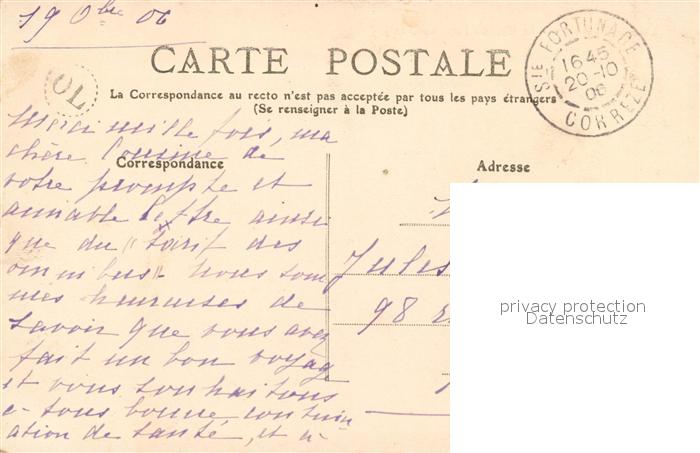 19 8bre 06
CARTE POSTALE
La Correspondance au recto n'est pas acceptée par tous les pays étrangers
(Se renseigner à la Poste)
STE FORTUNADE
1645
20-10
06
CORREZE
OL
Correspondance
Merci mille fois, ma
chère Cousine de
votre prompte et
aimable lettre ainsi
que du "tarif des
omnibus". Nous som
mes heureuses de
savoir que vous avez
fait un bon voyag
et vous souhaitons
à tous bonne continu
ation de santé, et n
Adresse
Jules
98
privacy protection
Datenschutz